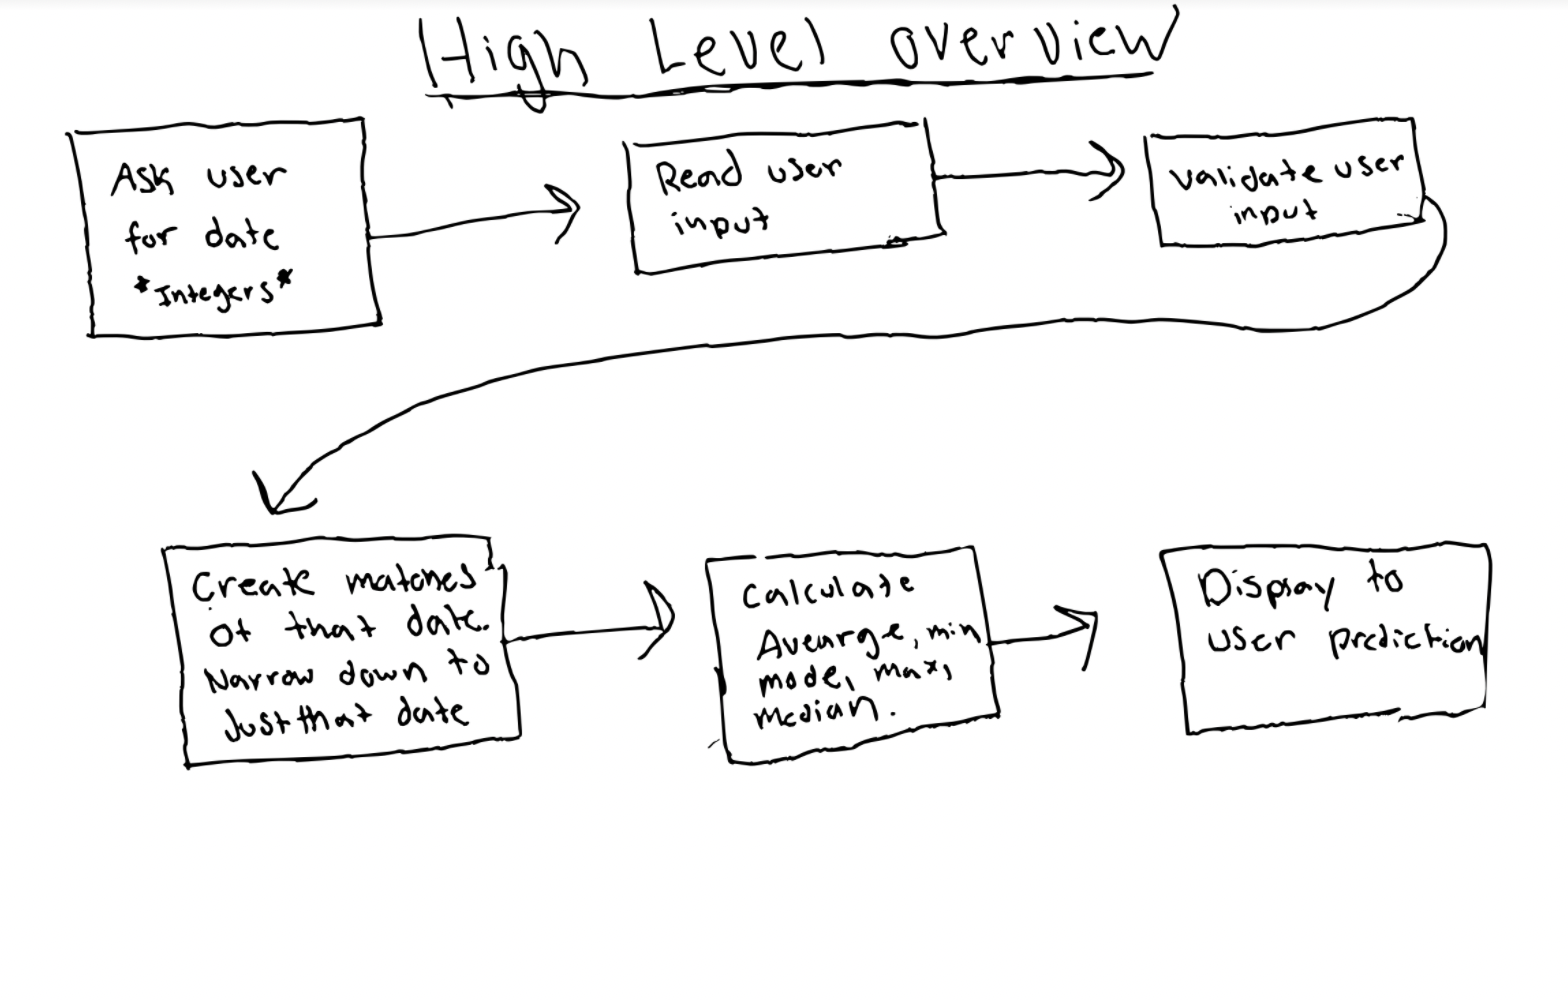 High Level overview
Ask user
for date
*Integers*
Read user
input
validate user
input
Create matches
of that date.
Narrow down to
Just that date
Calculate
Avearge, min
mode, max,
median.
Display to
user prediction